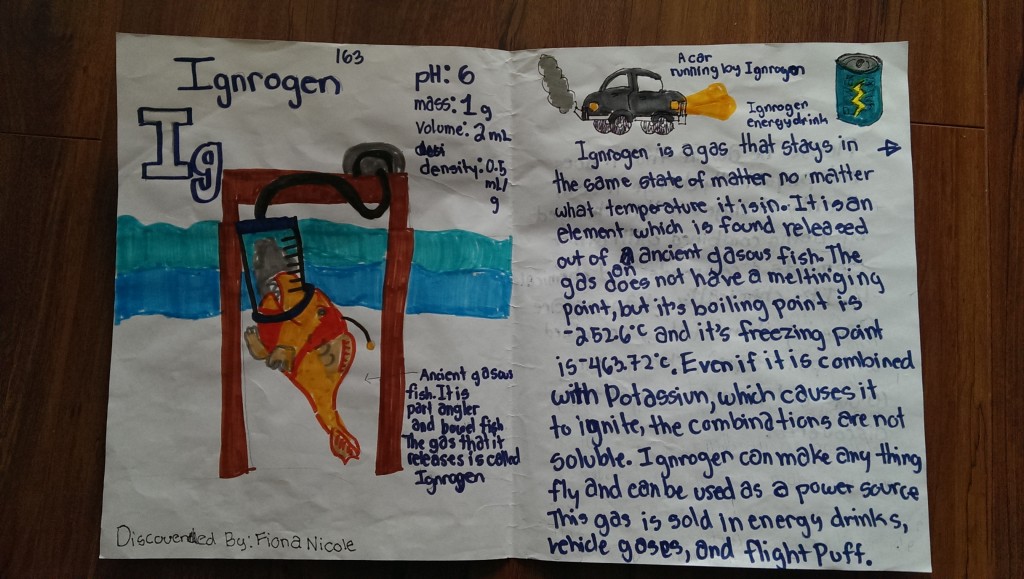 Ignrogen
163
Ig
pH: 6
mass: 1 g
Volume: 2 mL
desi
density: 0.5
mL/
g
Ancient gasous
fish. It is
part angler
and bowel fish
The gas that it
releases is called
Ignrogen
Discovereded By: Fiona Nicole
A car
running by Ignrogen
Ignrogen
energy drink
Ignrogen is a gas that stays in
the same state of matter no matter
what temperature it is in. It is an
element which is found released
out of an ancient gasous fish. The
gas does not have a meltinging
point, but it's boiling point is
-252.6°C and it's freezing point
is -463.72°C. Even if it is combined
with Potassiun, which causes it
to ignite, the combinations are not
soluble. Ignrogen can make any thing
fly and can be used as a power source
This gas is sold in energy drinks,
vehicle gases, and flight Puff.